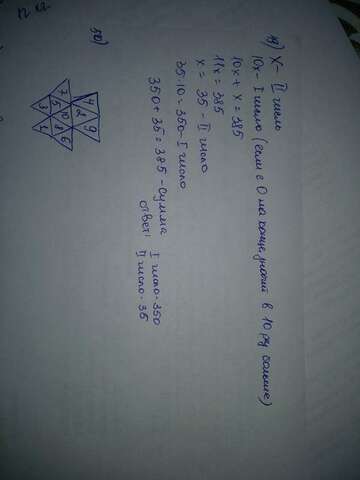 49) x - II число
10x - I число (если с 0 на конце, значит в 10 раз больше)
10x + x = 385
11x = 385
x = 35 - II число
35·10 = 350 - I число
350 + 35 = 385 - сумма
ответ: I число - 350
II число - 35
50)
4 2 9
7 5 10 8 6
3